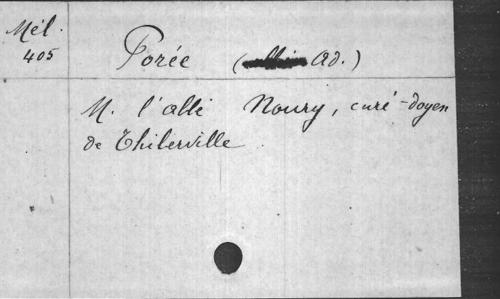 Mél.
405
Porée ( Ad.)
M. l'abbé Noury, curé-doyen
de Thiberville